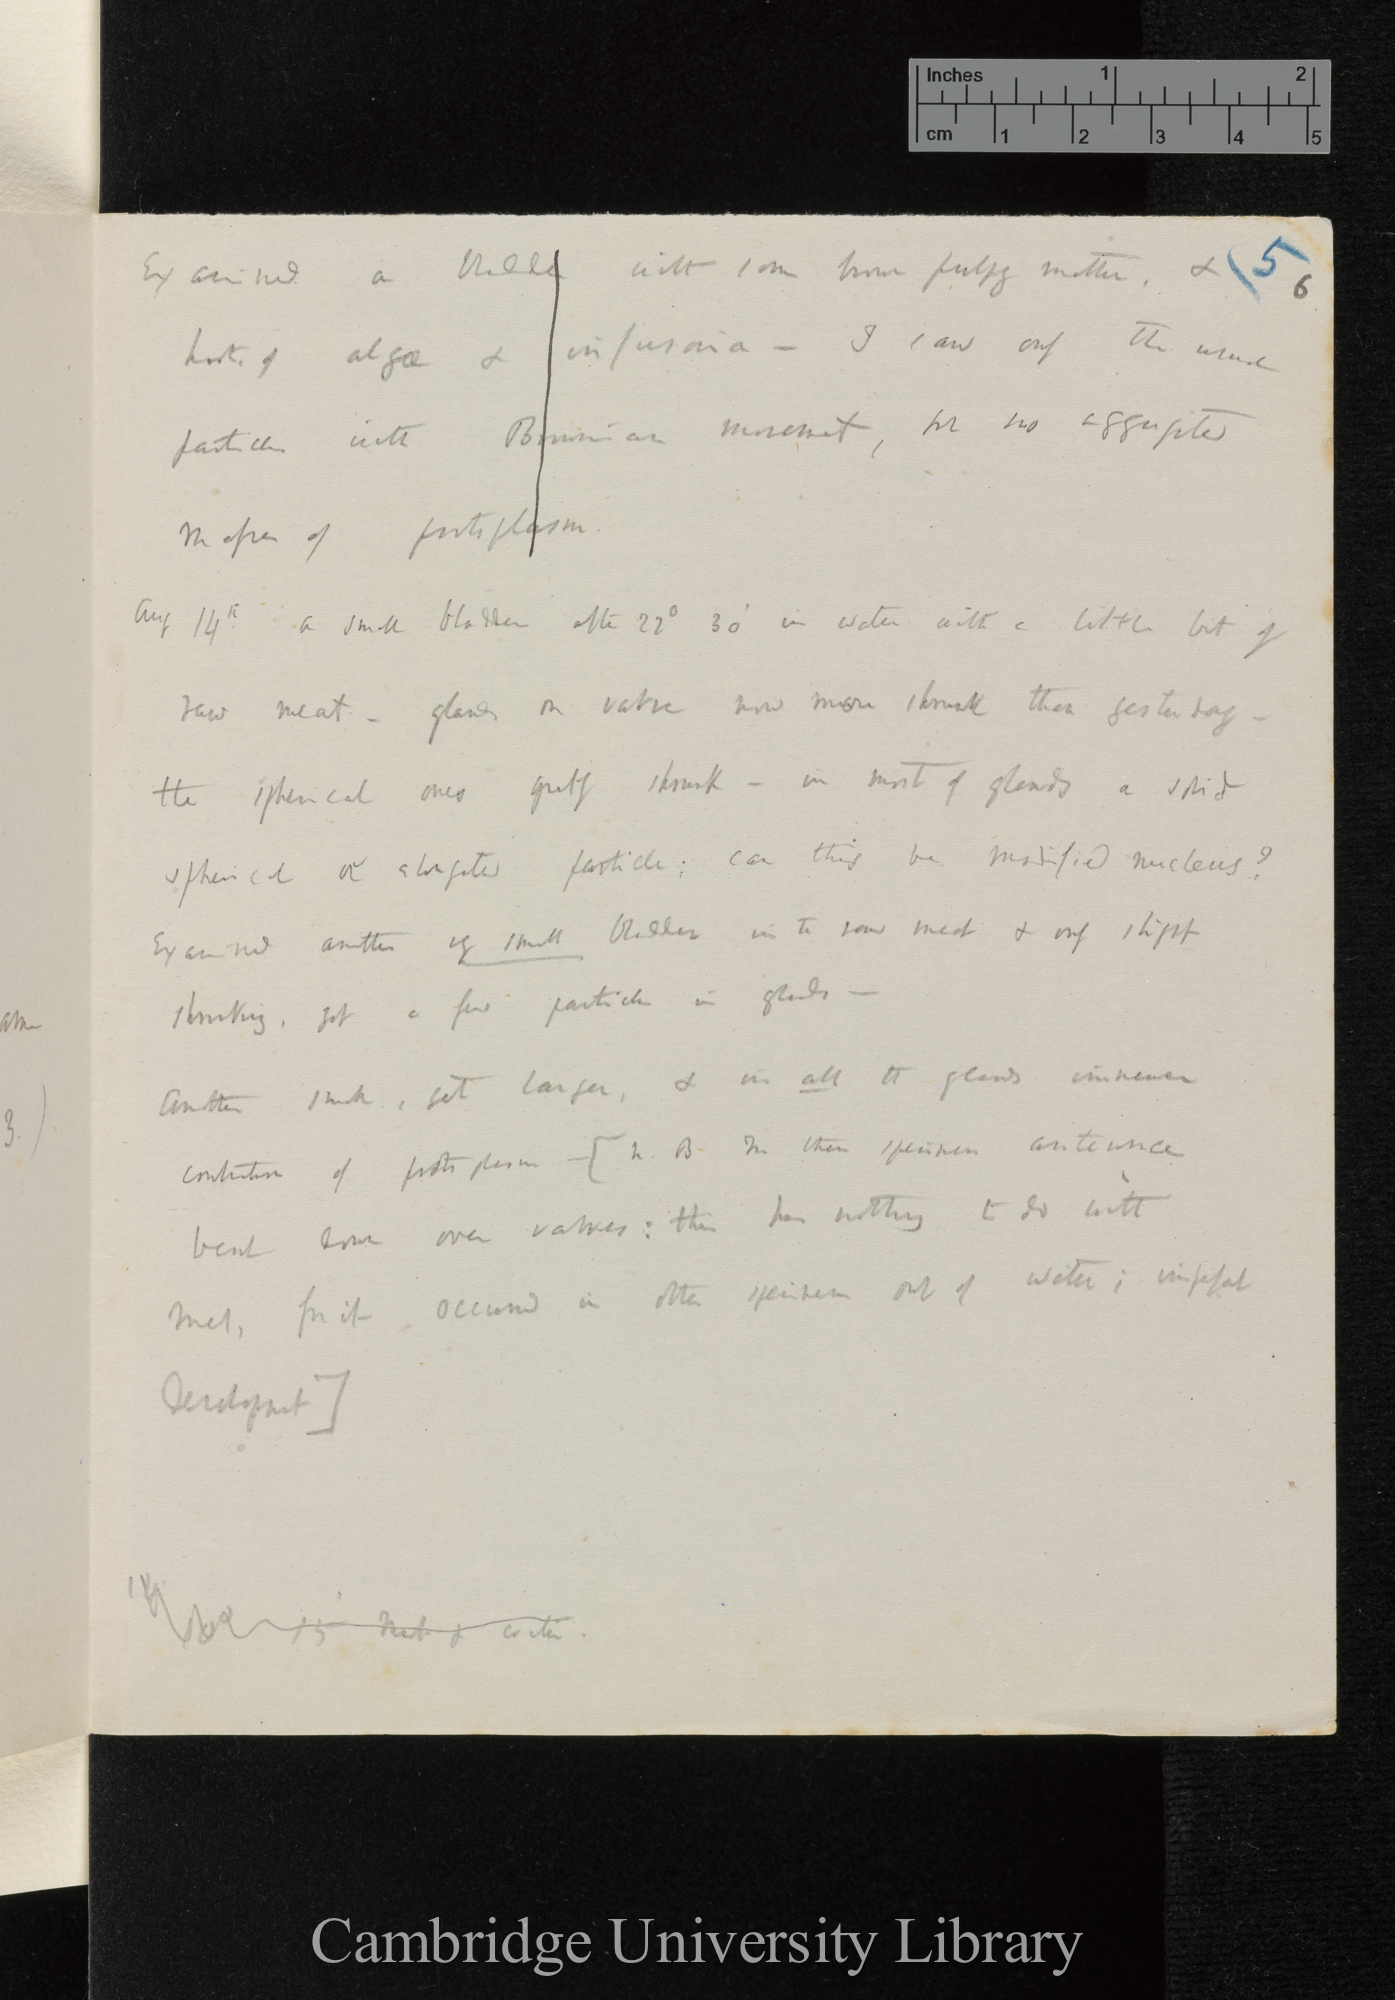 Inches 1 2
cm 1 2 3 4 5
(5
6
Examined a bladder with some brown pulpy matter, &
hosts of algæ & infusoria — I saw only the usual
particles with Brownian movement, but no aggregated
masses of protoplasm.
Aug 14th a small bladder after 22° 30' in water with a little bit of
raw meat — glands on valve now more shrunk than yesterday —
the spherical ones greatly shrunk — in most of glands a solid
spherical or elongated particle; can this be modified nucleus?
Examined another vy small bladder in to raw meat & only slight
shrinking, yet a few particles in glands —
Another small, yet larger, & in all the glands immense
contraction of protoplasm — [N.B. In these specimens antennæ
bent down over valves: this has nothing to do with
meat, for it occurred in other specimens out of water; imperfect
Development]
15' Meat & water.
3.)
Cambridge University Library